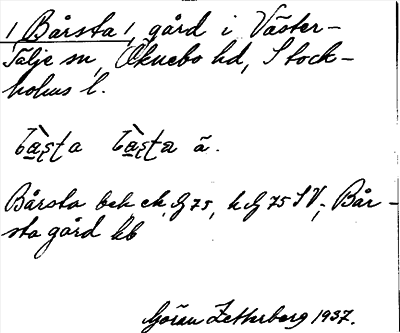 1 Bårsta 1, gård i Väster-
Tälje sn, Öknebo hd, Stock-
holms l.
Bårsta bek ek G 75, h G 75 SV; Bår-
sta gård kb
Göran Zetterberg 1937.